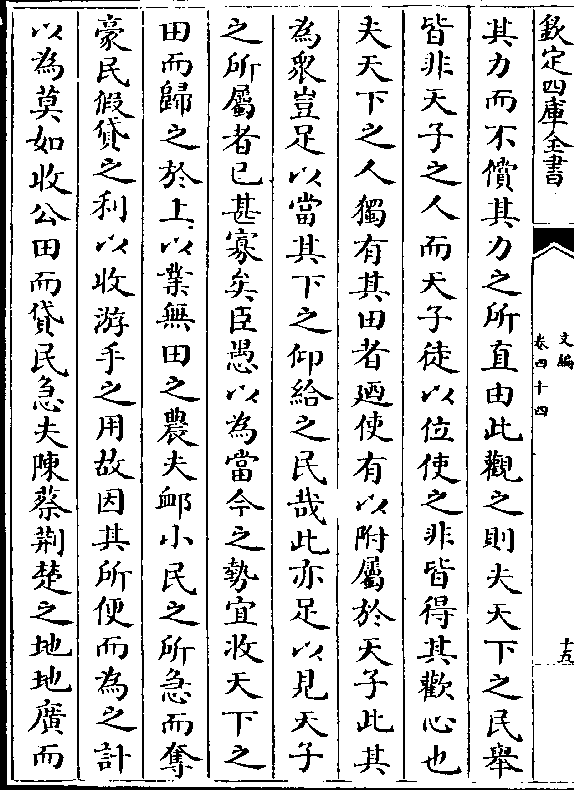 欽定四庫全書
文編
卷四十四
十五
其力而不償其力之所直由此觀之則夫天下之民舉
皆非天子之人而天子徒以位使之非皆得其歡心也
夫天下之人獨有其田者廼使有以附屬於天子此其
為衆豈足以當其下之仰給之民哉此亦足以見天子
之所屬者已甚寡矣臣愚以為當今之勢宜收天下之
田而歸之於上以業無田之農夫卹小民之所急而奪
豪民假貸之利以收游手之用故因其所便而為之計
以為莫如收公田而貸民急夫陳蔡荆楚之地地廣而